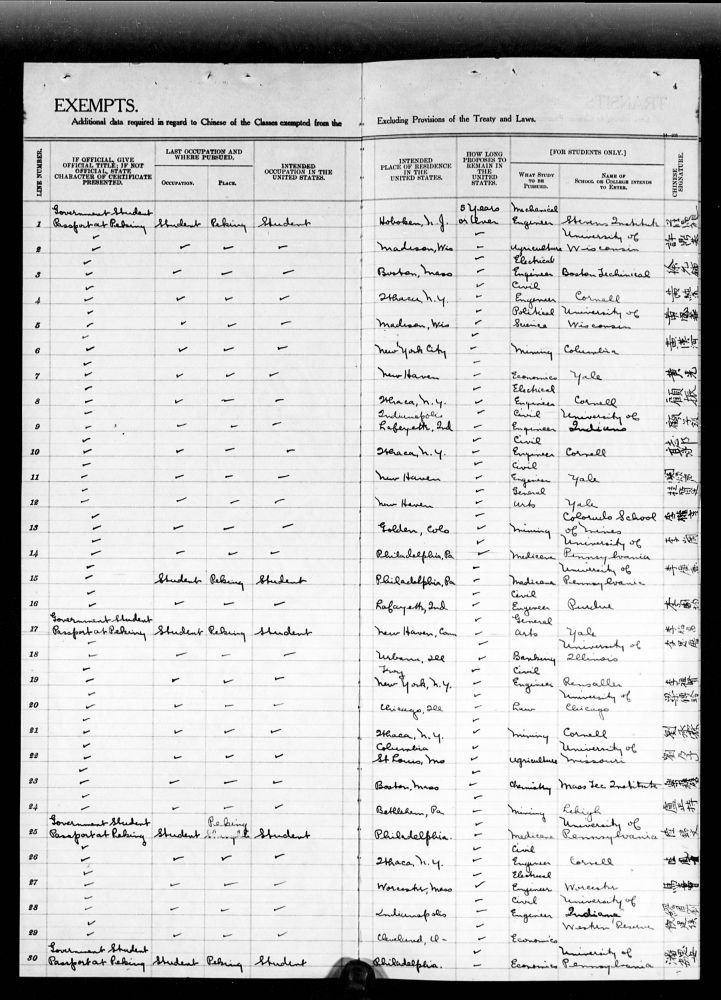 4
EXEMPTS.
Additional data required in regard to Chinese of the Classes exempted from the Excluding Provisions of the Treaty and Laws.
LINE NUMBER.
IF OFFICIAL, GIVE
OFFICIAL TITLE; IF NOT
OFFICIAL, STATE
CHARACTER OF CERTIFICATE
PRESENTED.
LAST OCCUPATION AND
WHERE PURSUED.
OCCUPATION.
PLACE.
INTENDED
OCCUPATION IN THE
UNITED STATES.
INTENDED
PLACE OF RESIDENCE
IN THE
UNITED STATES.
HOW LONG
PROPOSES TO
REMAIN IN
THE
UNITED
STATES.
[FOR STUDENTS ONLY.]
WHAT STUDY
TO BE
PURSUED.
NAME OF
SCHOOL OR COLLEGE INTENDS
TO ENTER.
CHINESE
SIGNATURE.
Government Student 5 Years Mechanical
1 Passport at Peking Student Peking Student Hoboken, N. J. or Over Engineer Stevens Institute
University of
2 Madison, Wis Agriculture Wisconsin
Electrical
3 Boston, Mass Engineer Boston Technical
Civil
4 Ithaca, N. Y. Engineer Cornell
Political University of
5 Madison, Wis Science Wisconsin
6 New York City Mining Columbia
7 New Haven Economics Yale
Electrical
8 Ithaca, N. Y. Engineer Cornell
Indianapolis Civil University of
9 Lafayette, Ind Engineer Indiana
Civil
10 Ithaca, N. Y. Engineer Cornell
Civil
11 New Haven Engineer Yale
General
12 New Haven Arts Yale
Colorado School
13 Golden, Colo Mining of Mines
University of
14 Philadelphia, Pa Medicine Pennsylvania
University of
15 Student Peking Student Philadelphia, Pa Medicine Pennsylvania
Civil
16 Lafayette, Ind Engineer Purdue
Government Student General
17 Passport at Peking Student Peking Student New Haven, Conn Arts Yale
University of
18 Urbana, Ill Banking Illinois
Troy Civil
19 New York, N. Y. Engineer Rensaller
University of
20 Chicago, Ill Law Chicago
21 Ithaca, N. Y. Mining Cornell
Columbia University of
22 St Louis, Mo Agriculture Missouri
23 Boston, Mass Chemistry Mass Tec Institute
24 Bethlehem, Pa Mining Lehigh
Government Student Peking University of
25 Passport at Peking Student Student Philadelphia. Medicine Pennsylvania
Civil
26 Ithaca, N. Y. Engineer Cornell
Electrical
27 Worcester, Mass Engineer Worcester
Civil University of
28 Indianapolis Engineer Indiana
Western Reserve
29 Cleveland, O- Economics
Government Student University of
30 Passport at Peking Student Peking Student Philadelphia. Economics Pennsylvania